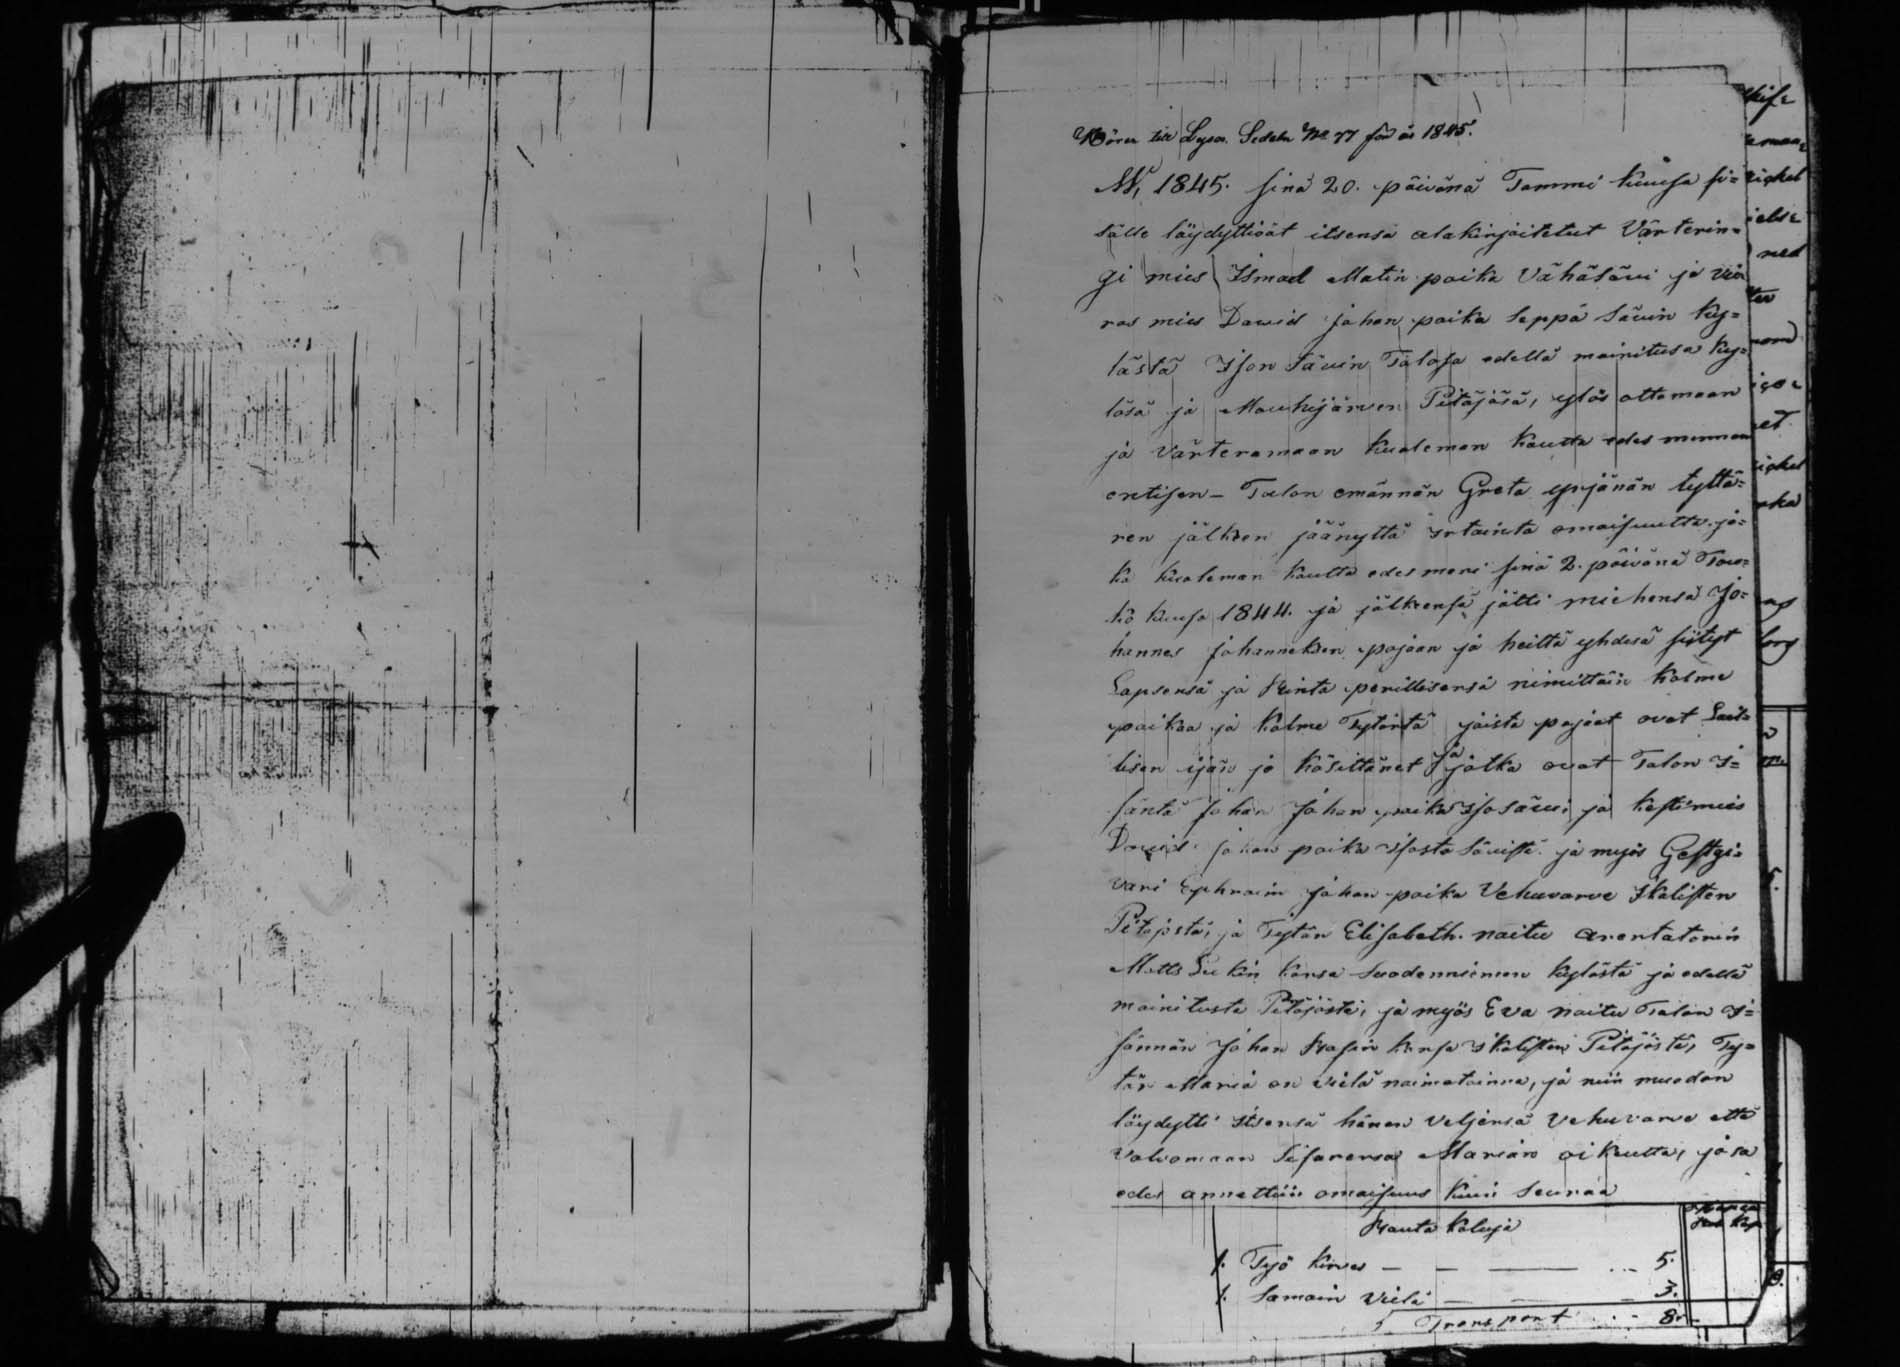 Hörer till Lysa. Sedeln No 77 för år 1845.
W, 1845. sinä 20. päivänä Tammi Kuusa si=
sälle löydyttivät itsensä alakirjoitetut Värterin=
gi mies Ismael Matin poika Vähäsävi ja vie
ras mies David Johan poika Seppä Sävin Ky=
lästä Ison Sävin Talosa edellä mainitusa Ky=
läsä ja Mouhijärven Pitäjäsä, ylös ottamaan
ja värteramaan Kuoleman Kautta edes mennen
entisen Talon emännän Greta yrjänän tyttä=
ren jälken jäänyttä irtainta omaisuutta jo=
ka kuoleman kautta edes meni sinä 2. päivänä Tou=
ko kuusa 1844. ja jälkensä jätti miehensä Jo=
hannes Johanneksen pojan ja heiltä yhdesä siityt
Lapsensä ja Rinta perillisensä nimittäin Kolme
poikaa ja Kolme Tytärtä joista pojat ovat Lail=
lisen ijän jo käsittänet ja jotka ovat Talon I=
säntä Johan Johan poika Isosävi, ja Kestimies
David Johan poika Isosta Sävistä ja myös Gestgi=
vari Ephraim Johan poika Vehuvarve Ikalisten
Pitäjstä, ja Tytär Elisabeth naitu Arentatorin
Matts kansa Suodenniemen kylästä ja edellä
mainitusta Pitäjästä, ja myös Eva naitu Talon I=
sännän Johan kansa Ikalisten Pitäjästä, Ty=
tär Maria on vielä naimatoinna, ja niin muodon
löydytti itsensä hänen Veljensä Vehuvarve että
Valvomaan Sisarensa Marian oikeutta, josa
edes annettiin omaisuus kuin seuraa
Rauta Kaluja
1. Työ Kirves — — — 5.
1. Samain Vielä — 3.
Transport 8.